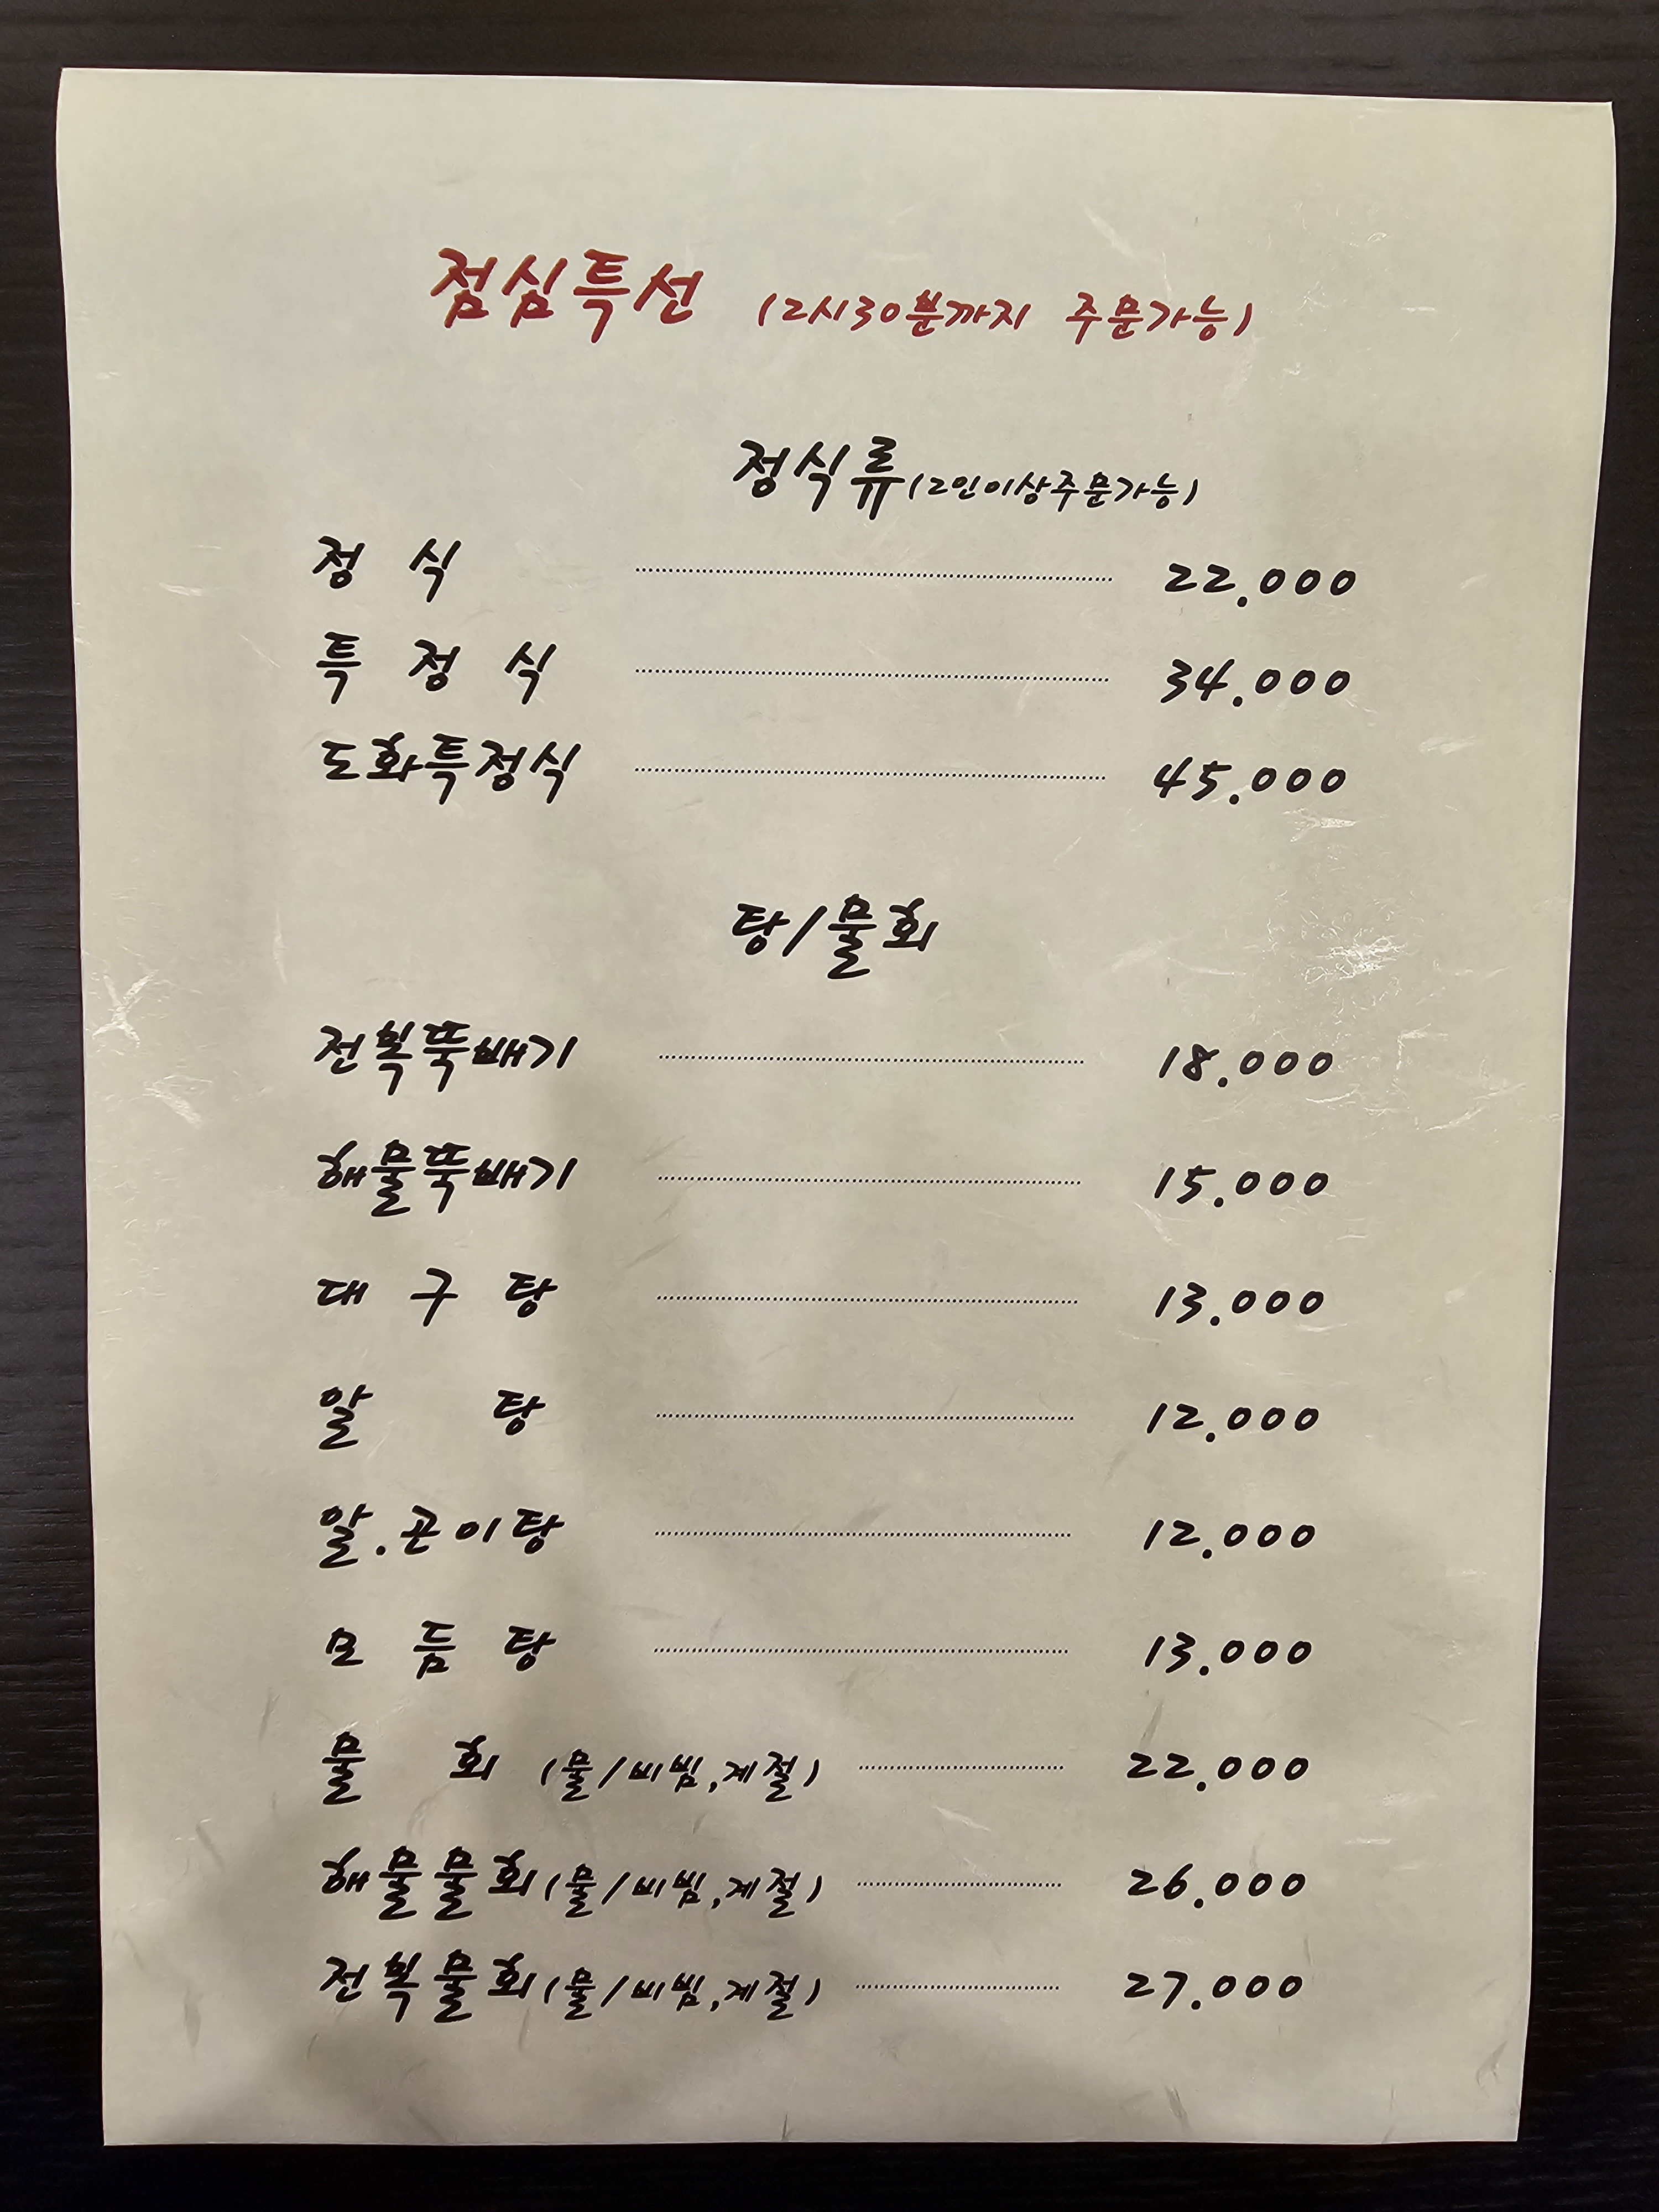 점심특선 (2시30분까지 주문가능)
정식류(2인이상주문가능)
정 식 22.000
특 정 식 34.000
도화특정식 45.000
탕/물회
전복뚝배기 18.000
해물뚝배기 15.000
대 구 탕 13.000
알 탕 12.000
알.곤이탕 12.000
모 듬 탕 13.000
물 회 (물/비빔,계절) 22.000
해물물회(물/비빔,계절) 26.000
전복물회(물/비빔,계절) 27.000